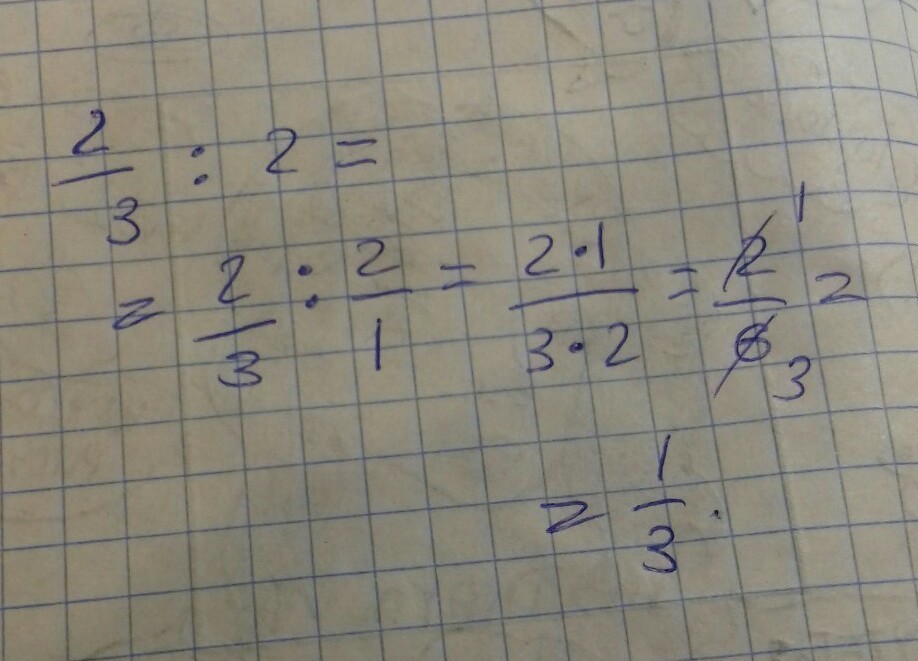 2/3 : 2 =
= 2/3 : 2/1 = 2·1/3·2 = 2 1/6 3 =
= 1/3.